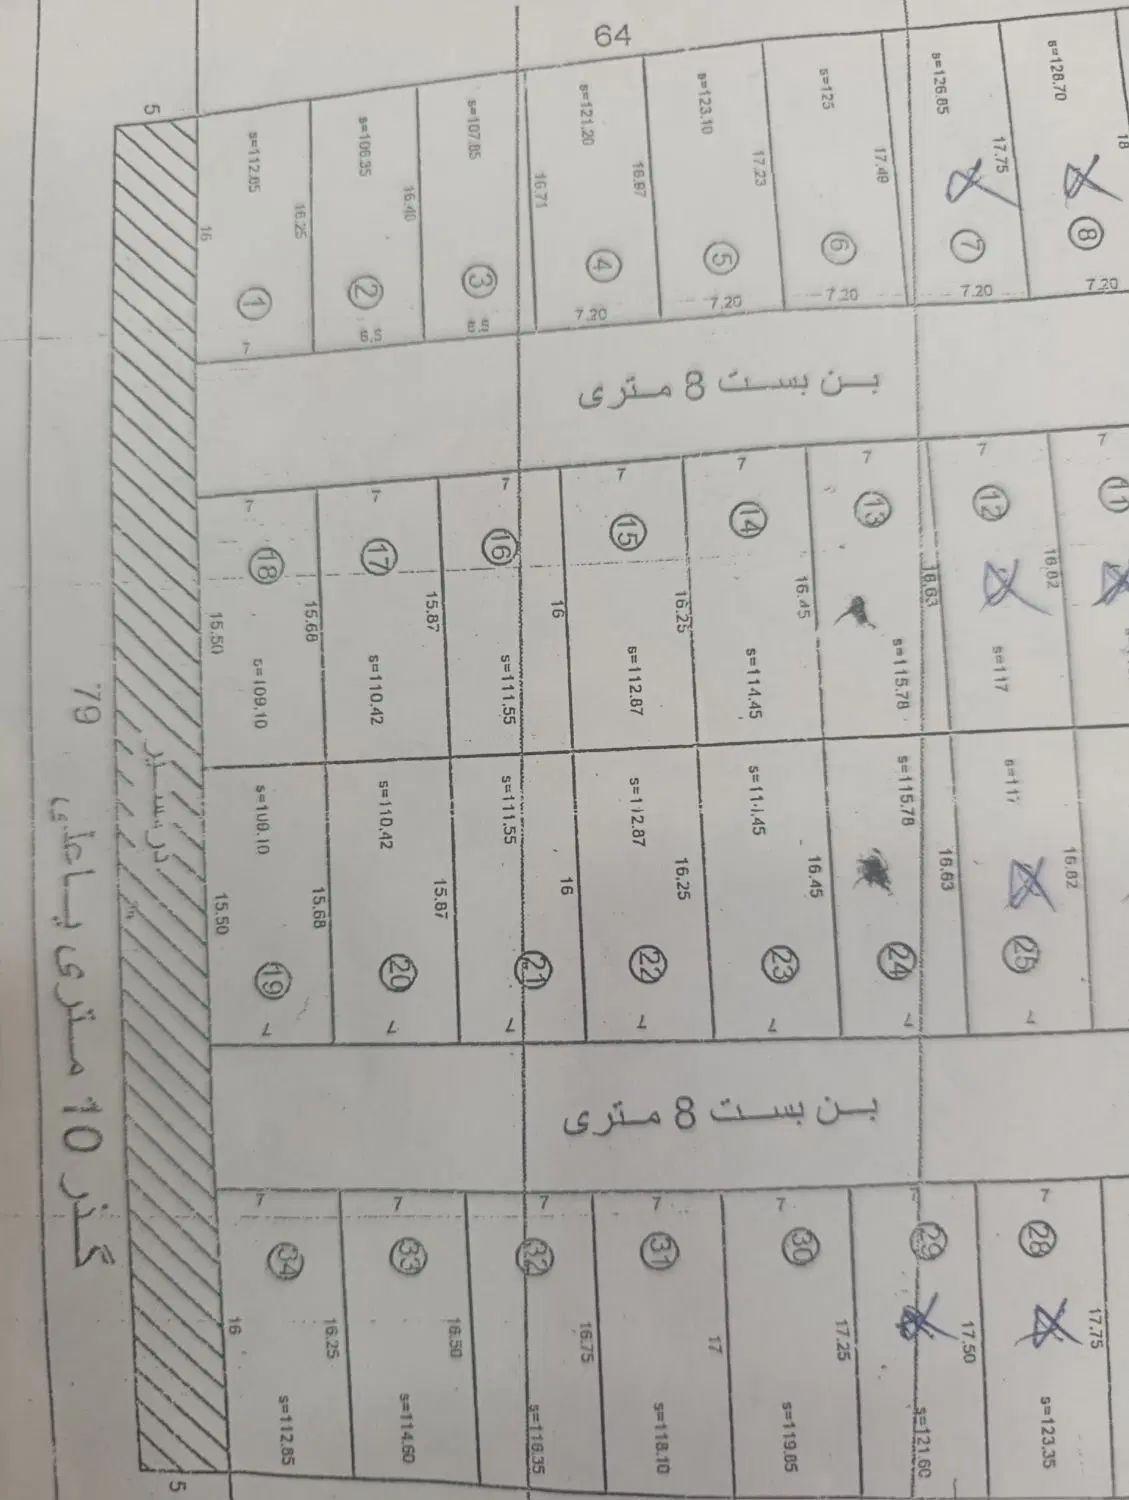 64
5
s=112.85
16.25
16
1
7
s=106.35
16.40
2
s=107.85
3
16.71
s=121.20
16.97
4
7.20
s=123.10
17.23
5
7.20
s=125
17.49
6
7.20
s=126.85
17.75
7
7.20
s=128.70
18
8
7.20
بن بست 8 متری
7
18
15.68
15.50
s=109.10
7
17
15.87
s=110.42
7
16
16
s=111.55
7
15
16.25
s=112.87
7
14
16.45
s=114.45
7
13
16.63
s=115.78
7
12
16.82
s=117
7
11
s=109.10
15.68
15.50
19
7
s=110.42
15.87
20
7
s=111.55
16
21
7
s=112.87
16.25
22
7
s=114.45
16.45
23
7
s=115.78
16.63
24
7
s=117
16.82
25
7
بن بست 8 متری
7
34
16.25
16
s=112.85
7
33
16.50
s=114.60
7
32
16.75
s=116.35
7
31
17
s=118.10
7
30
17.25
s=119.85
29
17.50
s=121.60
7
28
17.75
s=123.35
5
79
گذر 10 متری